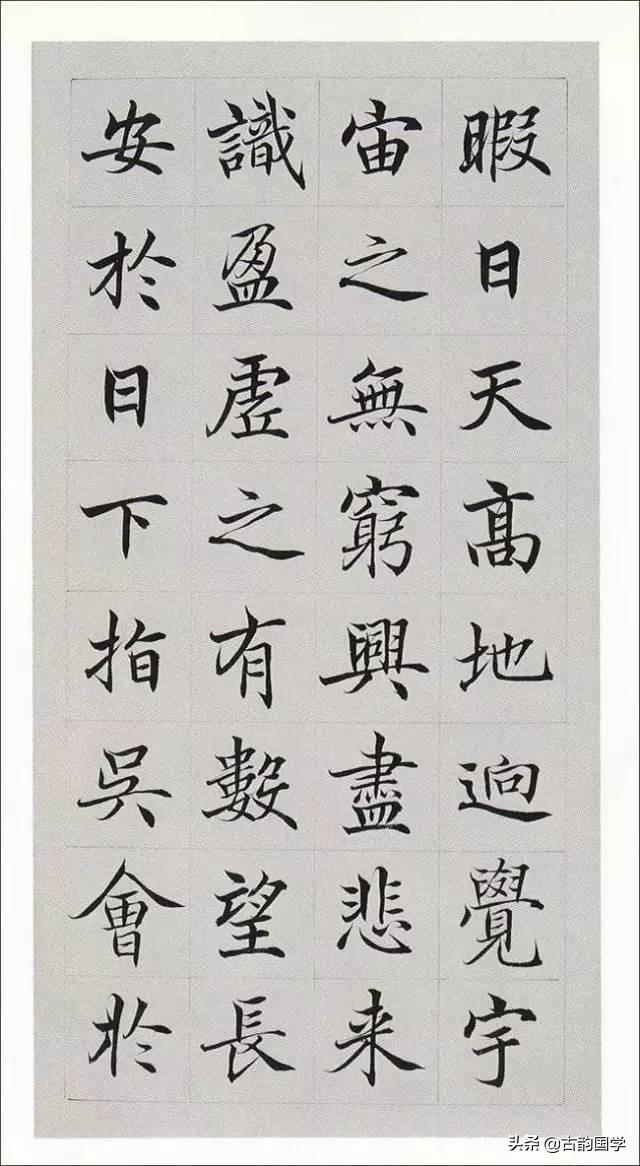 暇日天高地迥覺宇
宙之無窮興盡悲来
識盈虛之有數望長
安於日下指吳會於
头条 @古韵国学